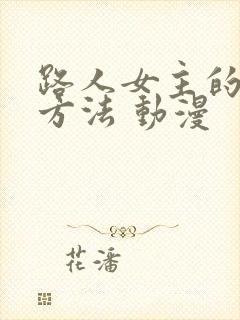 路人女主的
方法 動漫
花潘